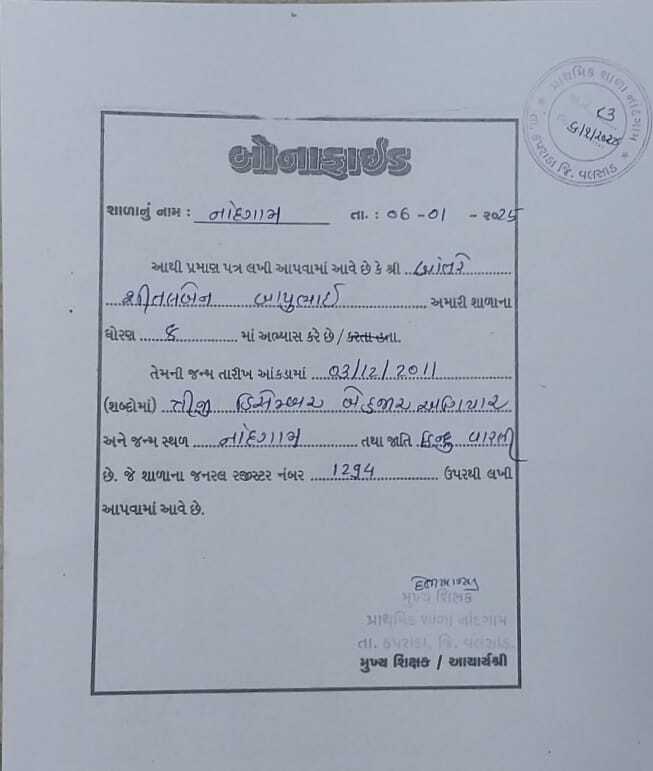 પ્રાથમિક શાળા નાંદગામ
તા. કપરાડા જિ. વલસાડ
બોનાફાઇડ
શાળાનું નામ : નાંદગામ તા. : 06 - 01 - ૨૦25
આથી પ્રમાણ પત્ર લખી આપવામાં આવે છે કે શ્રી
શીતલબેન બાપુભાઈ અમારી શાળાના
ધોરણ ૮ માં અભ્યાસ કરે છે / કરતા હતા.
તેમની જન્મ તારીખ આંકડામાં 03/12/2011
(શબ્દોમાં) ત્રીજી ડિસેમ્બર બે હજાર અગિયાર
અને જન્મ સ્થળ નાંદગામ તથા જાતિ હિન્દુ વારલી
છે. જે શાળાના જનરલ રજીસ્ટર નંબર 1294 ઉપરથી લખી
આપવામાં આવે છે.
મુખ્ય શિક્ષક
પ્રાથમિક શાળા નાંદગામ
તા. કપરાડા, જિ. વલસાડ.
મુખ્ય શિક્ષક / આચાર્યશ્રી